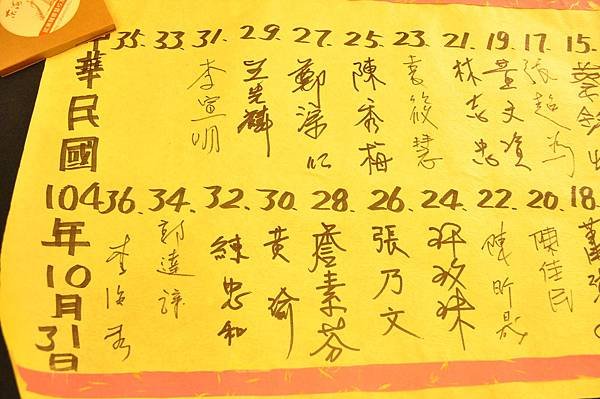 15. 蔡
17. 張超
19. 黃文資
21. 林志忠
23. 袁筱慧
25. 陳秀梅
27. 鄭
29. 王
31. 李宣明
33.
35.
18.
20. 陳佳民
22. 陳昕
24.
26. 張乃文
28. 詹素芬
30. 黃瑜
32. 練忠和
34. 郭達
36. 李
中華民國104年10月31日